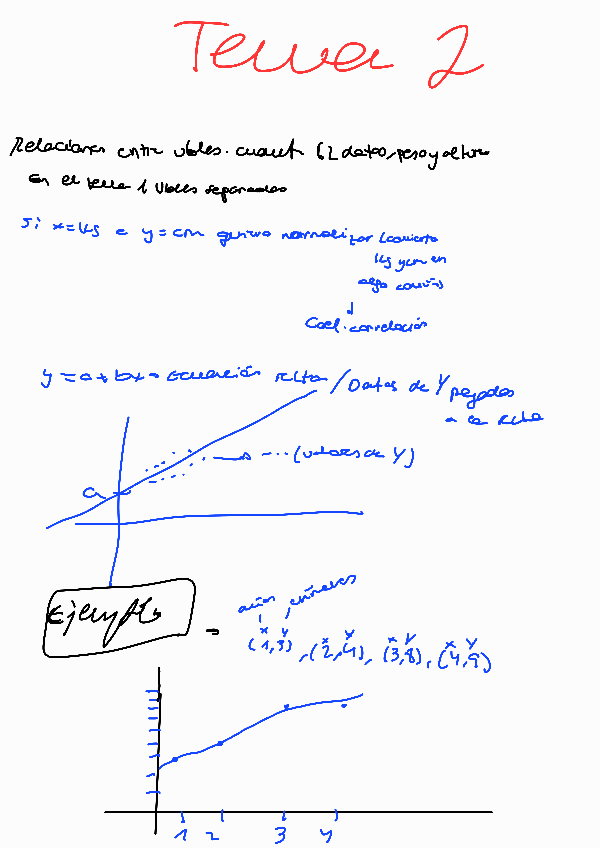 Tema 2
Relaciones entre vbles. cuant (2 datos, peso y altura
En el tema 1 vbles separadas
Si x=kg e y=cm quiero normalizar (convierto
kg y cm en
algo común)
Coef. correlación
y = a + bx → Ecuación recta / Datos de Y pegados
a la recta
a
(valores de Y)
Ejemplo
años
x y
(1,3), (2,4), (3,8), (4,9)
x y x y x y
1 2 3 4